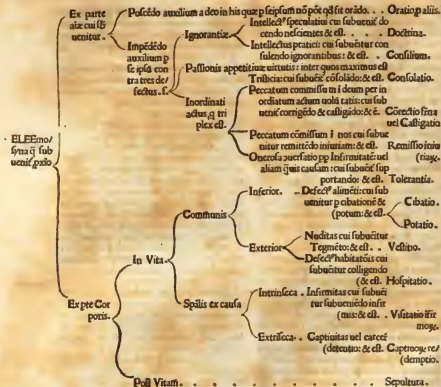 Ex parte
aiæ cui sb
uenitur.
Poscēdo auxilium a deo in his quæ p seipsum nō pōt qd sit orādo. . . Oratio p aliis.
Impēdēdo
auxilium p
se ipsū con
tra tres de/
fectus. s.
Ignorantiæ
Intellectꝰ speculatiui cui subueniť do
cendo nescientes & est . . Doctrina.
Intellectus pratici: cui subueitur con
sulendo ignorantibus: & est . Consilium.
Passionis appetitiuæ uirtutis: inter quos maximus est
Tristicia: cui subueiť cōsolādo: & est. Consolatio.
Inordinati
actus, q tri
plex est.
Peccatum commissum i deum per in
ordiatum actum uolūtatis: cui sub
ueniť corrigēdo & castigādo: & ē. Corectio frna
uel Castigatio
Peccatum cōmissum i nos cui subue
nitur remittēdo iniuriam: & est. Remissio iniu
(riaꝝ.
Onerosa ɔuersatio pp Infirmitatē: uel
aliam quis causam: cui subueniť sup
portando: & est. Tolerantia.
ELEEmo/
syna q̄ sub
ueniť, pxīo
Ex pte Cor
poris.
In Vita.
Communis
Inferior.
Defectꝰ alimēti: cui sub
uenitur p cibationē &
(potum: & est.
Cibatio.
Potatio.
Exterior
Nuditas cui subueitur
Tegmēto: & est. . Vestitio.
Defectꝰ habitatōis cui
subueitur colligendo
(& est. Hospitatio.
Spālis ex causa
Intrinseca. Infirmitas cui subuēi
tur subueniēdo infir
(mis: & est. Visitatio ifir
moꝝ.
Extriseca. Captiuitas uel carceř
(detentio: & est. Captiuoꝝ re/
(demptio.
Post Vitam. . . . . . . . . Sepultura.